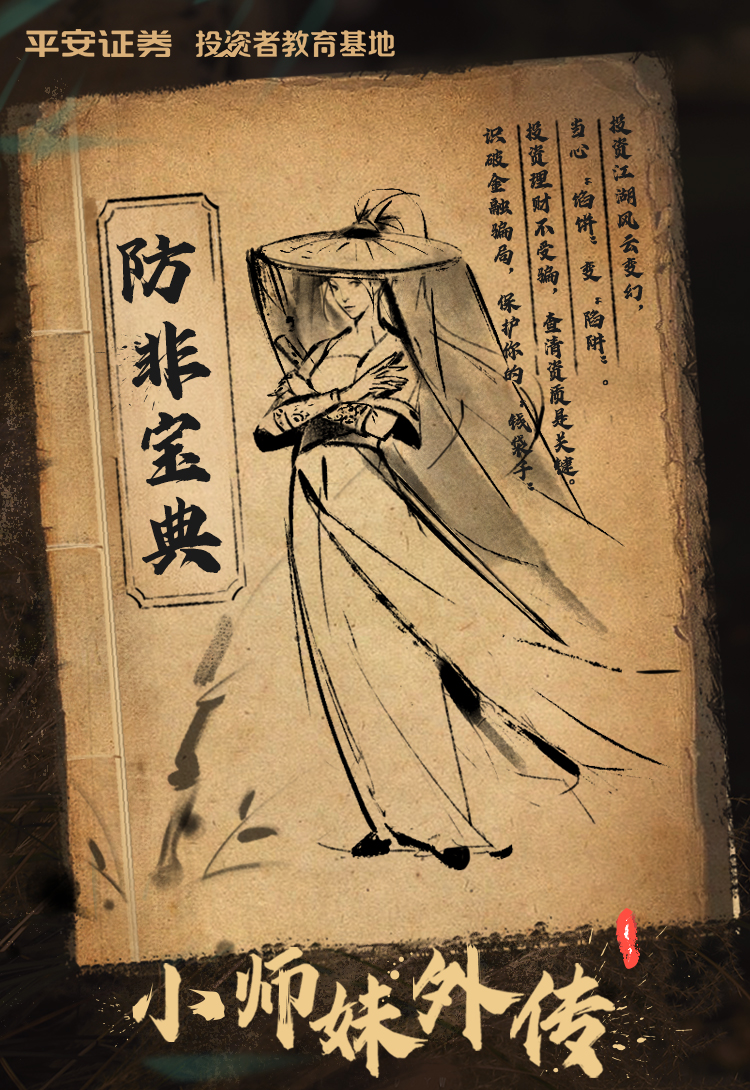 平安证券 投资者教育基地
投资江湖风云变幻，
当心“馅饼”变“陷阱”。
投资理财不受骗，查清资质是关键。
识破金融骗局，保护你的“钱袋子”。
防非宝典
小师妹外传